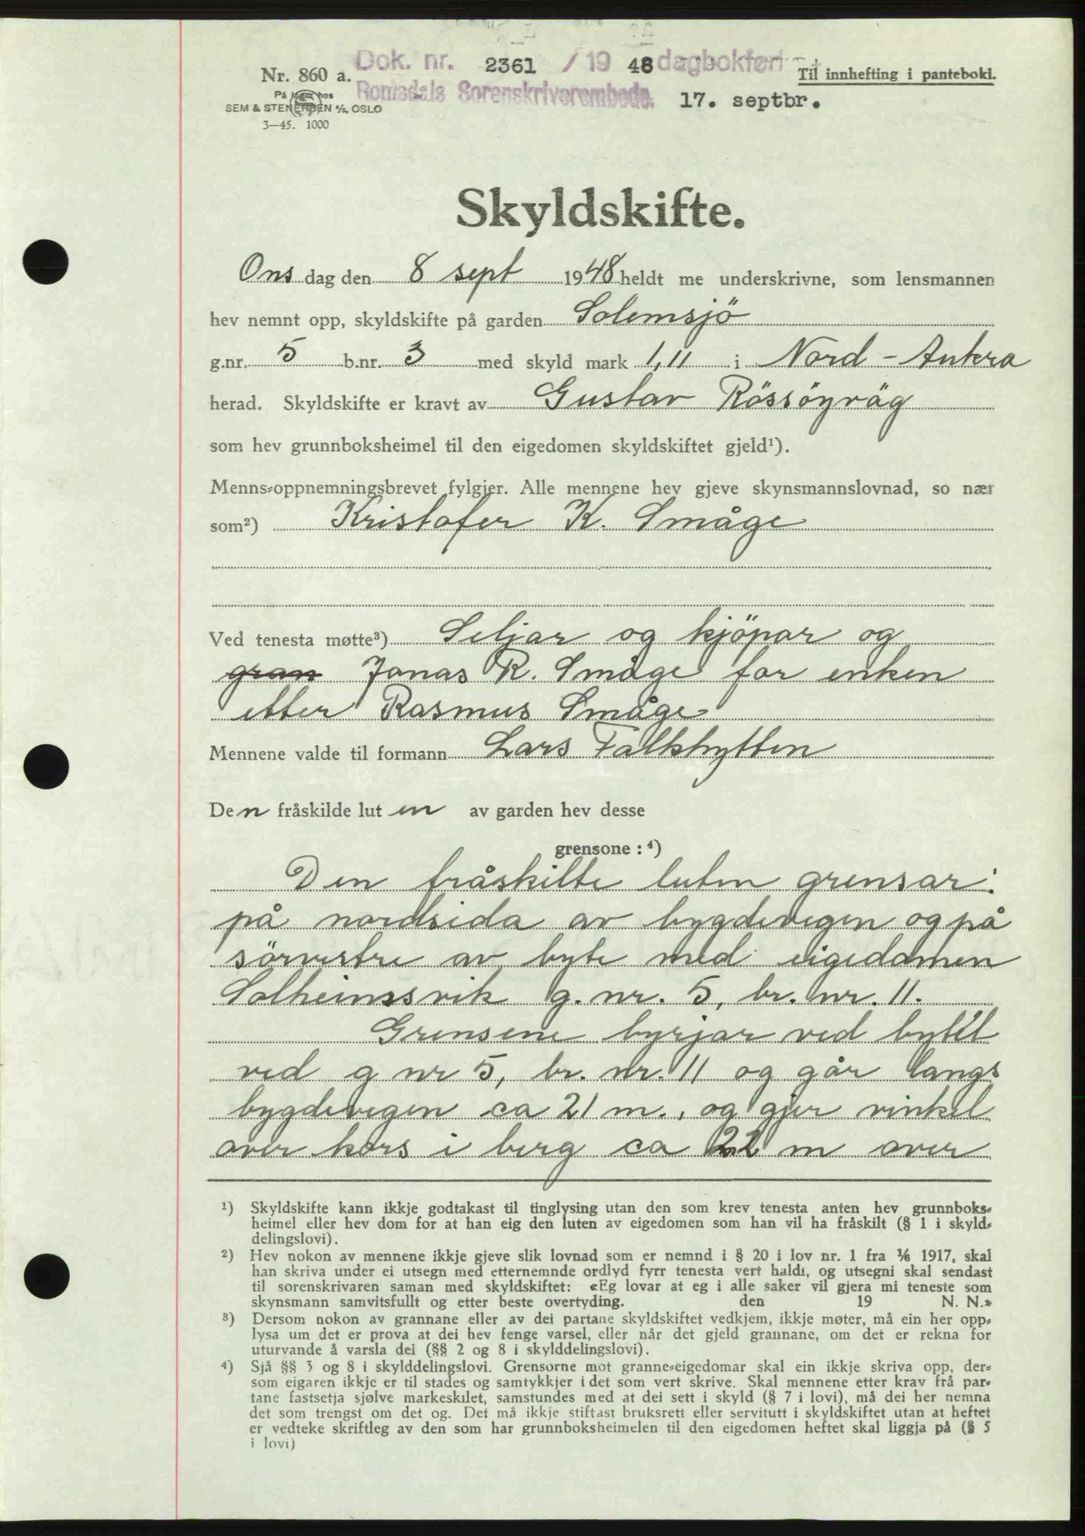 Dok. nr. 2361 / 19 48 dagbokført
Nr. 860 a.
Til innhefting i panteboki.
På lager hos
Romsdals Sorenskriverembede. 17. septbr.
SEM & STENERSEN A/S, OSLO
3—45. 1000
Skyldskifte.
Ons dag den 8 sept 1948 heldt me underskrivne, som lensmannen
hev nemnt opp, skyldskifte på garden Solemsjö
g.nr. 5 b.nr. 3 med skyld mark 1,11 i Nord-Aukra
herad. Skyldskifte er kravt av Gustav Rössöyvåg
som hev grunnboksheimel til den eigedomen skyldskiftet gjeld¹).
Menns-oppnemningsbrevet fylgjer. Alle mennene hev gjeve skynsmannslovnad, so nær
som²) Kristofer K. Småge
Ved tenesta møtte³) Seljar og kjöpar og
gran Jonas R. Småge for enken
etter Rasmus Småge
Mennene valde til formann Lars Falkhytten
Den fråskilde luten av garden hev desse
grensone : ⁴)
Den fråskilte luten grensar:
på nordsida av bygdevegen og på
sörvestre av byte med eigedomen
Solheimssvik g. nr. 5, br. nr. 11.
Grensene byrjar ved bytet
ved g nr 5, br. nr. 11 og går langs
bygdevegen ca 21 m., og gjer vinkel
over kors i berg ca 22 m over
¹) Skyldskifte kann ikkje godtakast til tinglysing utan den som krev tenesta anten hev grunnboks-
heimel eller hev dom for at han eig den luten av eigedomen som han vil ha fråskilt (§ 1 i skyld-
delingslovi).
²) Hev nokon av mennene ikkje gjeve slik lovnad som er nemnd i § 20 i lov nr. 1 fra 1/6 1917, skal
han skriva under ei utsegn med etternemnde ordlyd fyrr tenesta vert haldi, og utsegni skal sendast
til sorenskrivaren saman med skyldskiftet: «Eg lovar at eg i alle saker vil gjera mi teneste som
skynsmann samvitsfullt og etter beste overtyding. den 19 N. N.»
³) Dersom nokon av grannane eller av dei partane skyldskiftet vedkjem, ikkje møter, må ein her opp-
lysa um det er prova at dei hev fenge varsel, eller når det gjeld grannane, om det er rekna for
uturvande å varsla dei (§§ 2 og 8 i skylddelingslovi).
⁴) Sjå §§ 3 og 8 i skylddelingslovi. Grensorne mot granne-eigedomar skal ein ikkje skriva opp, der-
som eigaren ikkje er til stades og samtykkjer i det som vert skrive. Skal mennene etter krav frå par-
tane fastsetja sjølve markeskilet, samstundes med at dei sett i skyld (§ 7 i lovi), må dei her nemna
det som trengst om det og. Det må ikkje stiftast bruksrett eller servitutt i skyldskiftet utan at heftet
er vedteke skriftleg av den som har grunnboksheimelen til den eigedomen heftet skal liggja på (§ 5
i lovi)